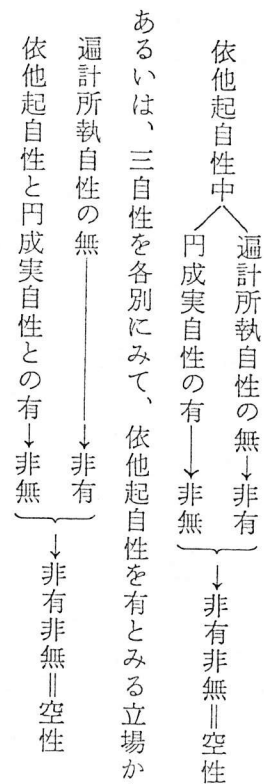 遍計所執自性の無→非有
依他起自性中
円成実自性の有→非無
→非有非無=空性
あるいは、三自性を各別にみて、依他起自性を有とみる立場か
遍計所執自性の無→非有
依他起自性と円成実自性との有→非無
→非有非無=空性